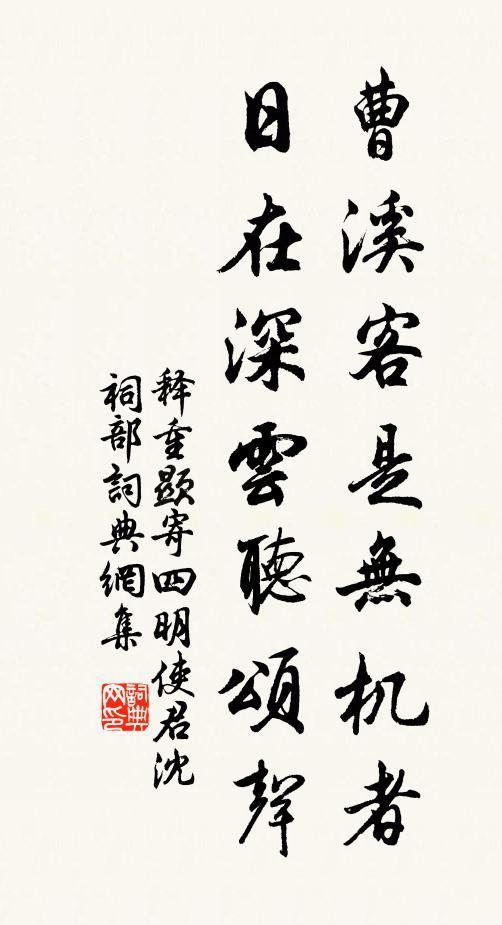 曹溪客是無机者
日在深雲聽頌聲
释重顯寄四明使君沈
祠部詞典網集
詞典网印